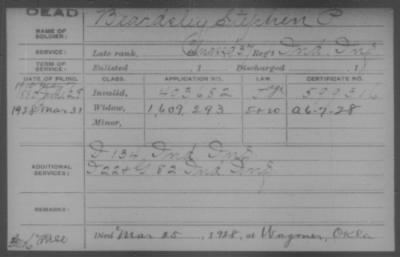 DEAD
NAME OF SOLDIER: Beardsley Stephen C
SERVICE: Late rank, Regt Ind. Inf.
TERM OF SERVICE: Enlisted , 1 Discharged , 1
DATE OF FILING. CLASS. APPLICATION NO. LAW. CERTIFICATE NO.
Invalid, 403682
1928 Mar 31 Widow, 1,609,293 a-6-7-28
Minor,
ADDITIONAL SERVICES: D 134 Ind Inf
82 Ind Inf
REMARKS:
Died Mar 25, 1928, at Wagoner, Okla